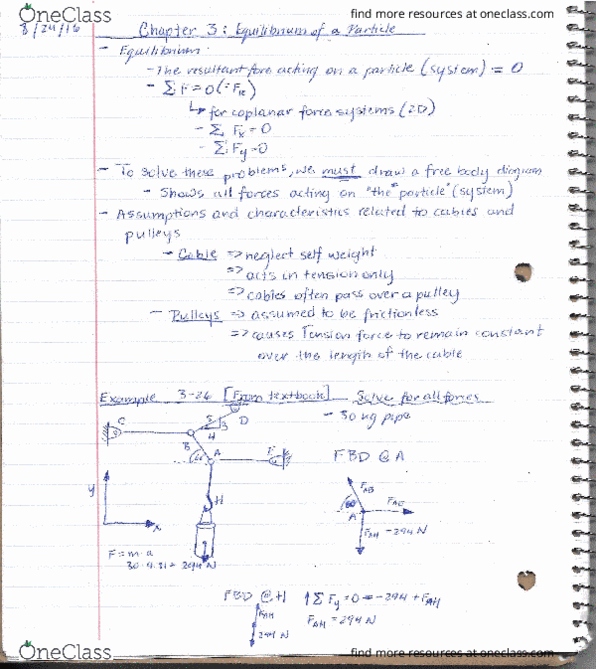 find more resources at oneclass.com
OneClass
8/24/16
Chapter 3: Equilibrium of a Particle
- Equilibrium:
- The resultant force acting on a particle (system) = 0
- Σ F = 0 (= FR)
↳ for coplanar force systems (2D)
- Σ Fx = 0
- Σ Fy = 0
- To solve these problems, we must draw a free body diagram
- Shows all forces acting on "the particle" (system)
- Assumptions and characteristics related to cables and
pulleys
- Cable => neglect self weight
=> acts in tension only
=> cables often pass over a pulley
- Pulleys => assumed to be frictionless
=> causes Tension force to remain constant
over the length of the cable
Example 3-26 [From textbook] Solve for all forces
- 30 kg pipe
C
5
3
4
D
B
A
E
60
H
y
x
F = m·a
30·9.81 = 294 N
FBD @ A
FAB
60
FAE
A
FAH = 294 N
FBD @ H
FAH
294 N
↑ Σ Fy = 0 = -294 + FAH
FAH = 294 N
OneClass
find more resources at oneclass.com